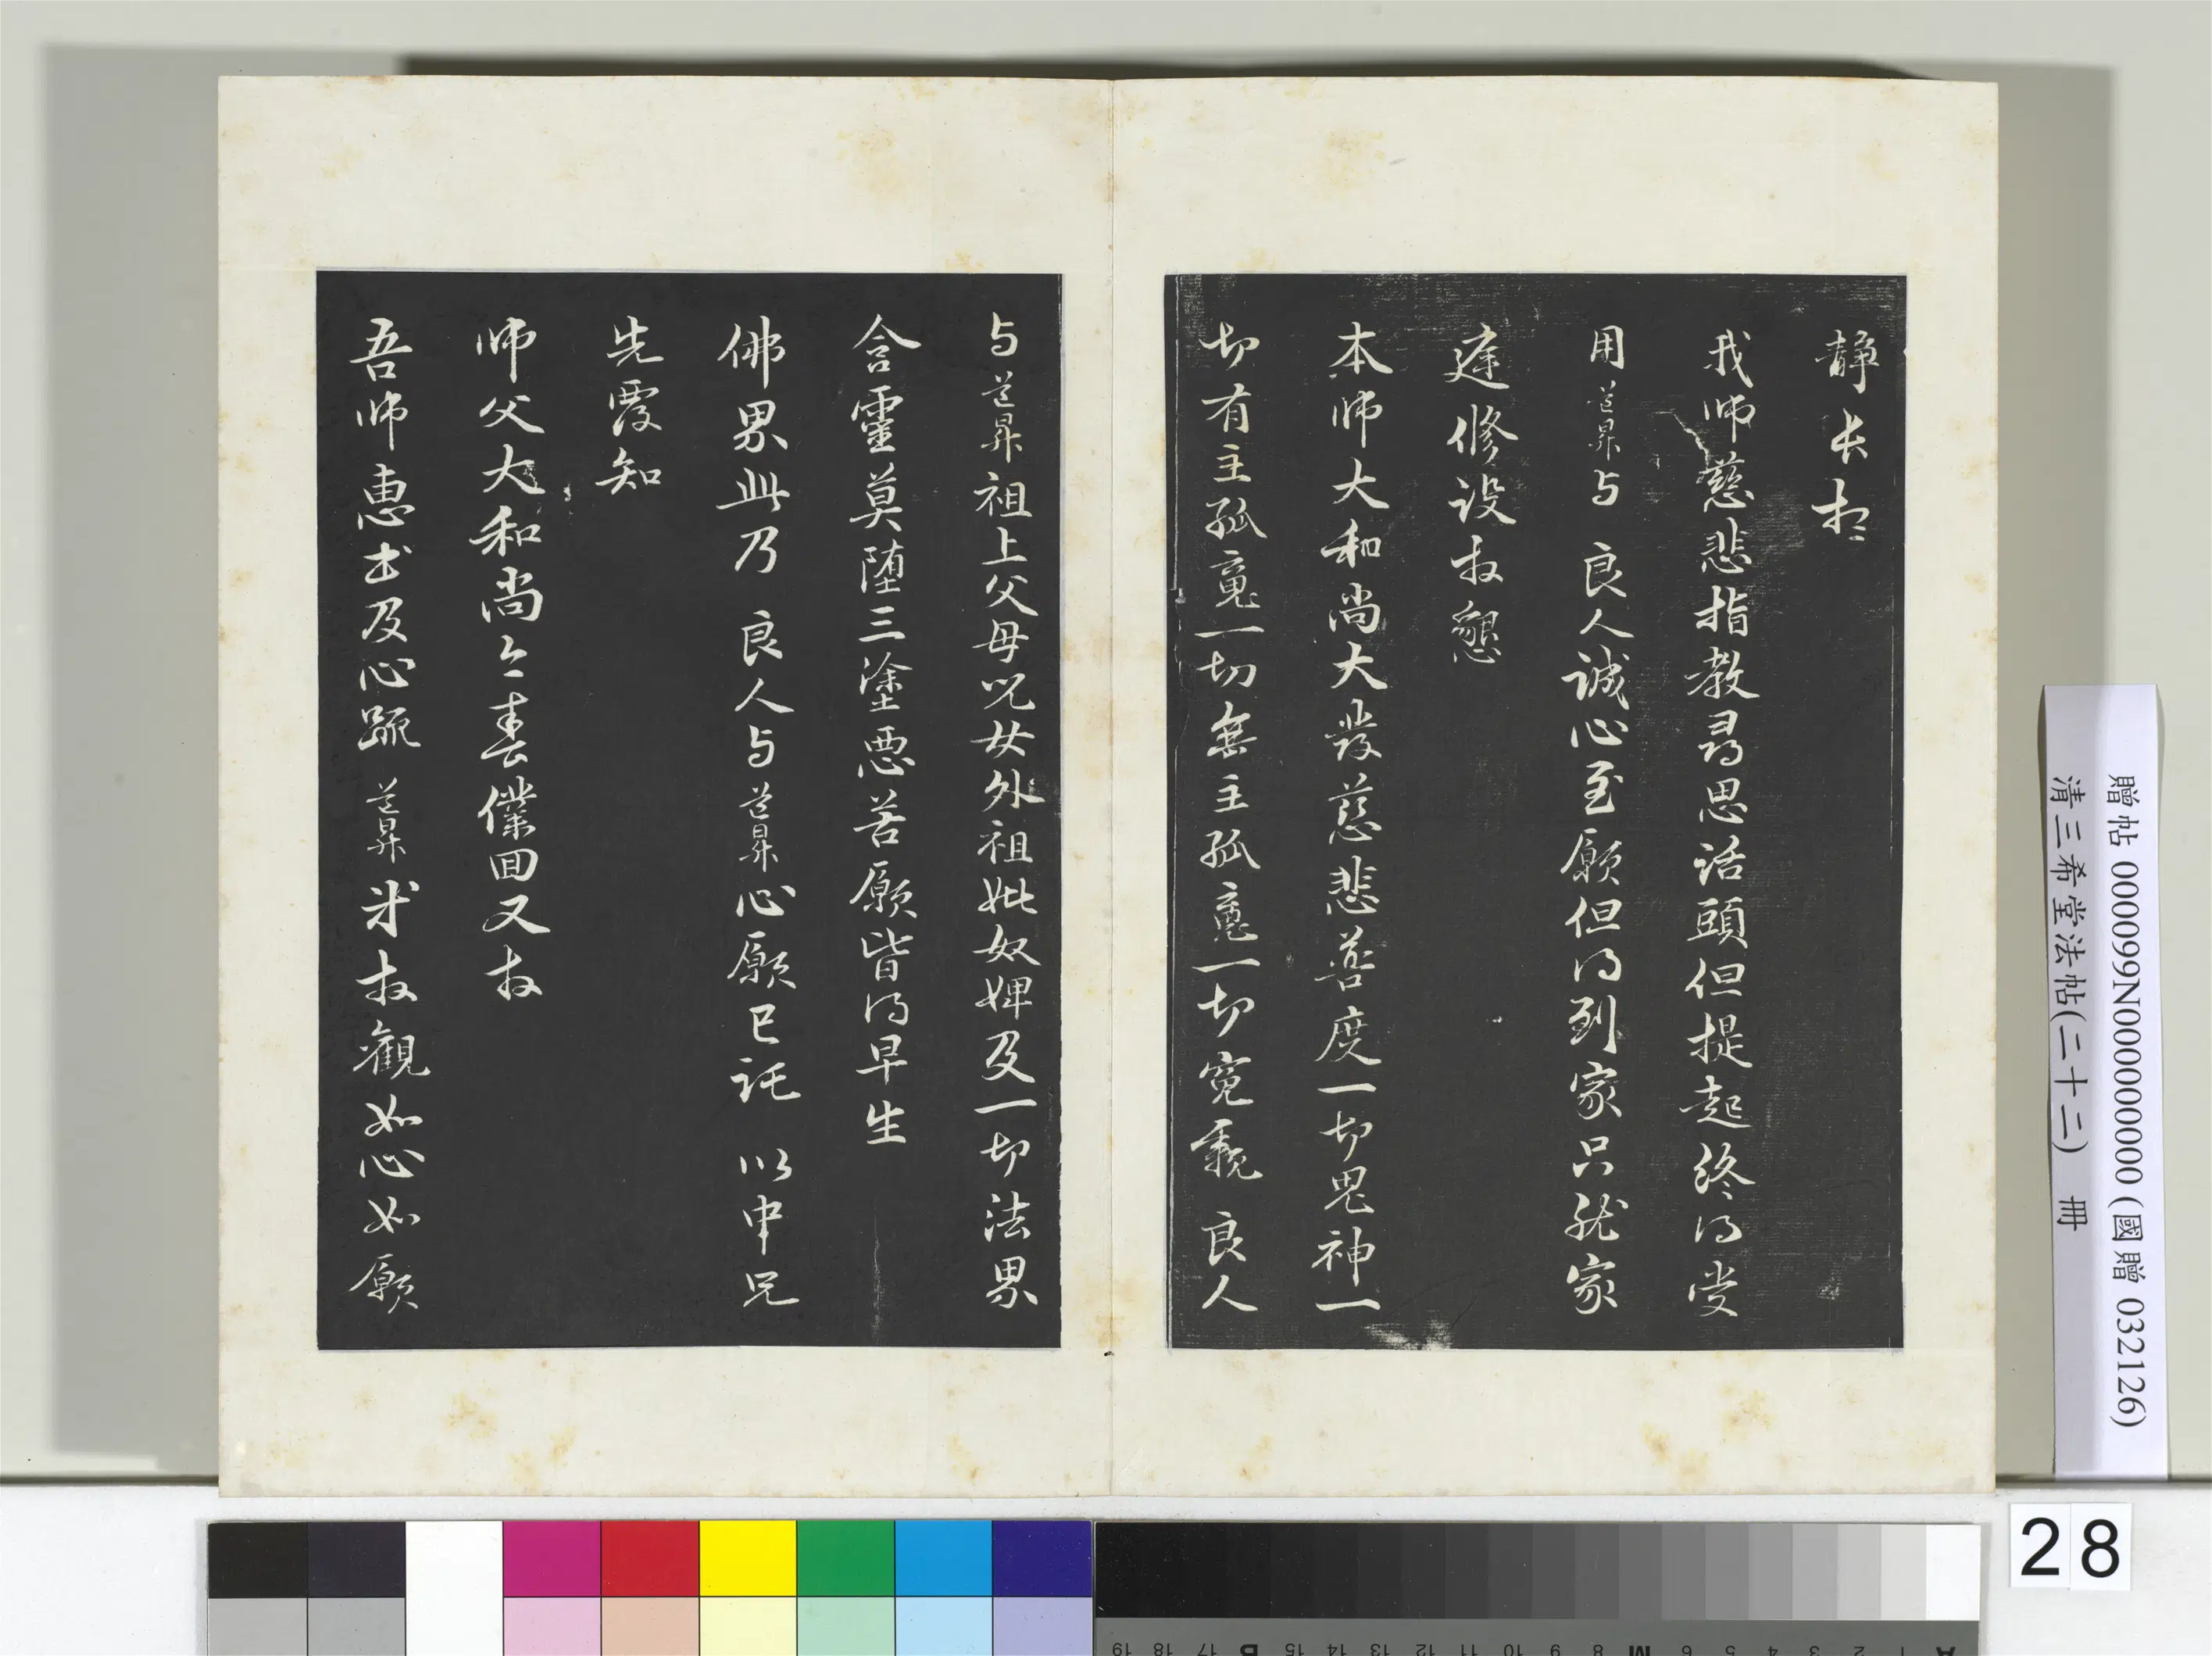 静長相
我師慈悲指教尋思話頭但提起終得受
用道昇与 良人誠心至願但得到家只就家
庭修設拔懇
本師大和尚大發慈悲普度一切鬼神一
切有主孤魂一切無主孤魂一切冤親 良人
与道昇祖上父母兒女外祖妣奴婢及一切法界
含靈莫墮三塗惡苦願皆得早生
佛界此乃 良人与道昇心願已託 以中兄
先覆知
師父大和尚今春僕回又拔
吾師惠书及心疏 道昇拜拔觀如心如願
贈帖 000099N000000000 (國贈 032126)
清三希堂法帖(二十二) 冊
28